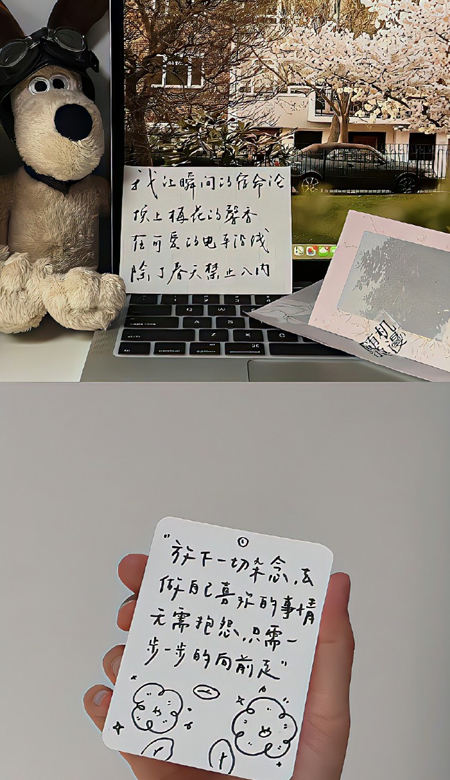 我让瞬间的宿命论
换上梅花的馨香
在可爱的电车沿线
除了春天禁止入内
随机
浪漫
"放下一切杂念,去
做自己喜欢的事情
无需抱怨,只需一
步一步的向前走"